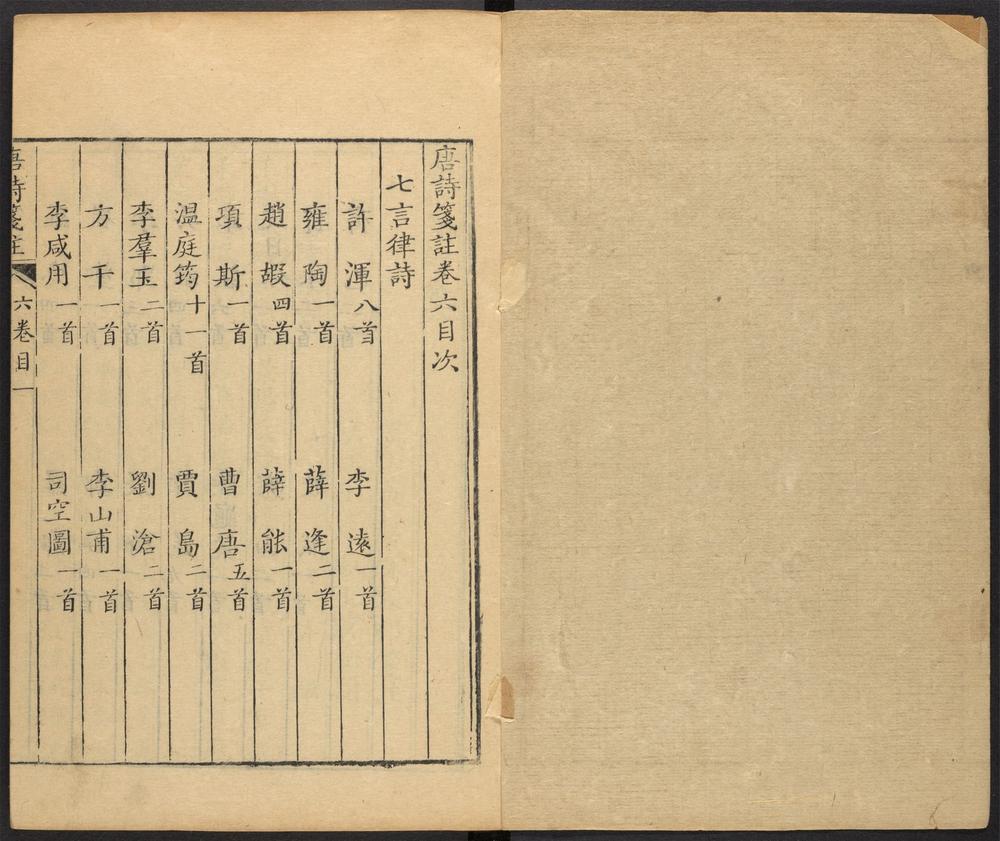 唐詩箋註卷六目次
七言律詩
許渾八首 李遠一首
雍陶一首 薛逢二首
趙嘏四首 薛能一首
項斯一首 曹唐五首
温庭筠十一首 賈島二首
李羣玉二首 劉滄二首
方干一首 李山甫一首
李咸用一首 司空圖一首
唐詩箋註 六卷目 一